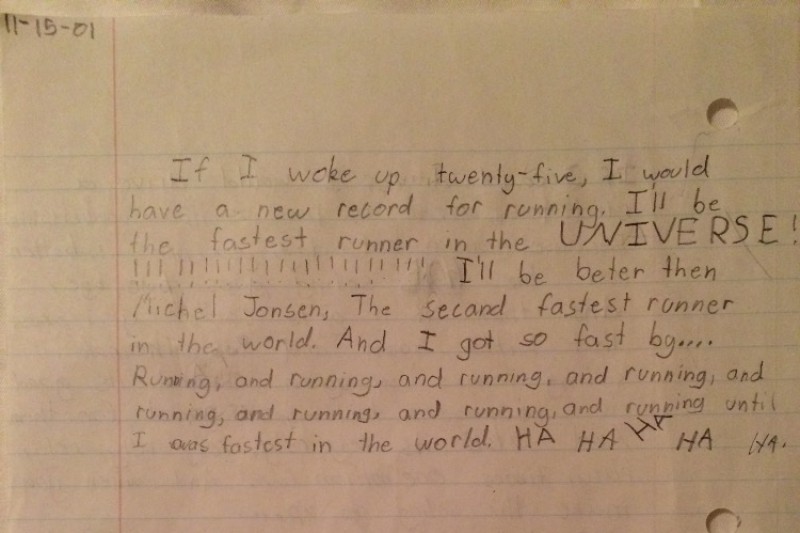 11-15-01
If I woke up twenty-five, I would
have a new record for running. I'll be
the fastest runner in the UNIVERSE!
!!!!!!!!!!!!!!!!!!!!!! I'll be beter then
Michel Jonsen, The second fastest runner
in the world. And I got so fast by....
Running, and running, and running, and running, and
running, and running, and running, and running until
I was fastest in the world. HA HA HA HA HA.